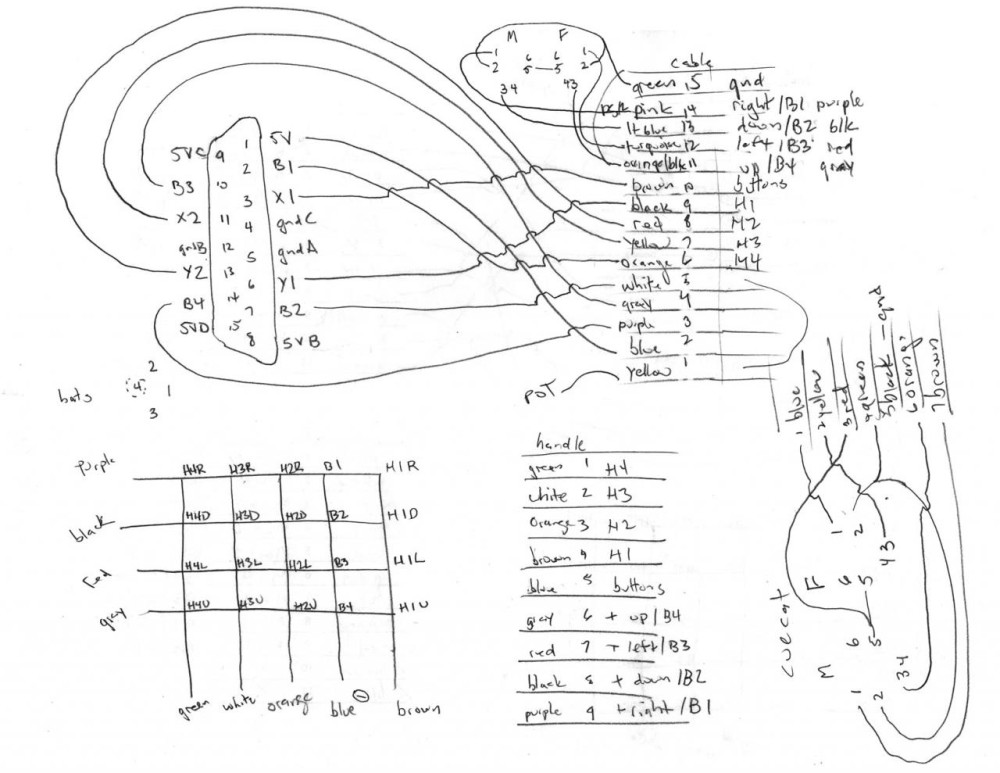 M F
1 6 6 1
2 5 5 2
3 4 4 3
cable
green 15 gnd
pink 14 right/B1 purple
lt blue 13 down/B2 blk
turquoise 12 left/B3 red
orange/blk 11 up/B4 gray
brown 10 buttons
black 9 H1
red 8 H2
yellow 7 H3
orange 6 H4
white 5
gray 4
purple 3
blue 2
yellow 1
POT
5VC 9 1 5V
2 B1
B3 10
3 X1
X2 11 4 gndC
gndB 12 5 gndA
Y2 13 6 Y1
B4 14 7 B2
5VD 15 8 5VB
2
hats 4 1
3
purple H4R H3R H2R B1 H1R
black H4D H3D H2D B2 H1D
red H4L H3L H2L B3 H1L
gray H4U H3U H2U B4 H1U
green white orange blue brown
handle
green 1 H4
white 2 H3
Orange 3 H2
brown 4 H1
blue 5 buttons
gray 6 + up/B4
red 7 + left/B3
black 8 + down/B2
purple 9 + right/B1
1 blue
2 yellow
3 red
4 green
5 black - gnd
6 orange
7 brown
cuecat
F
1 2
4 3
6 5
M
6 5
3 4
1 2